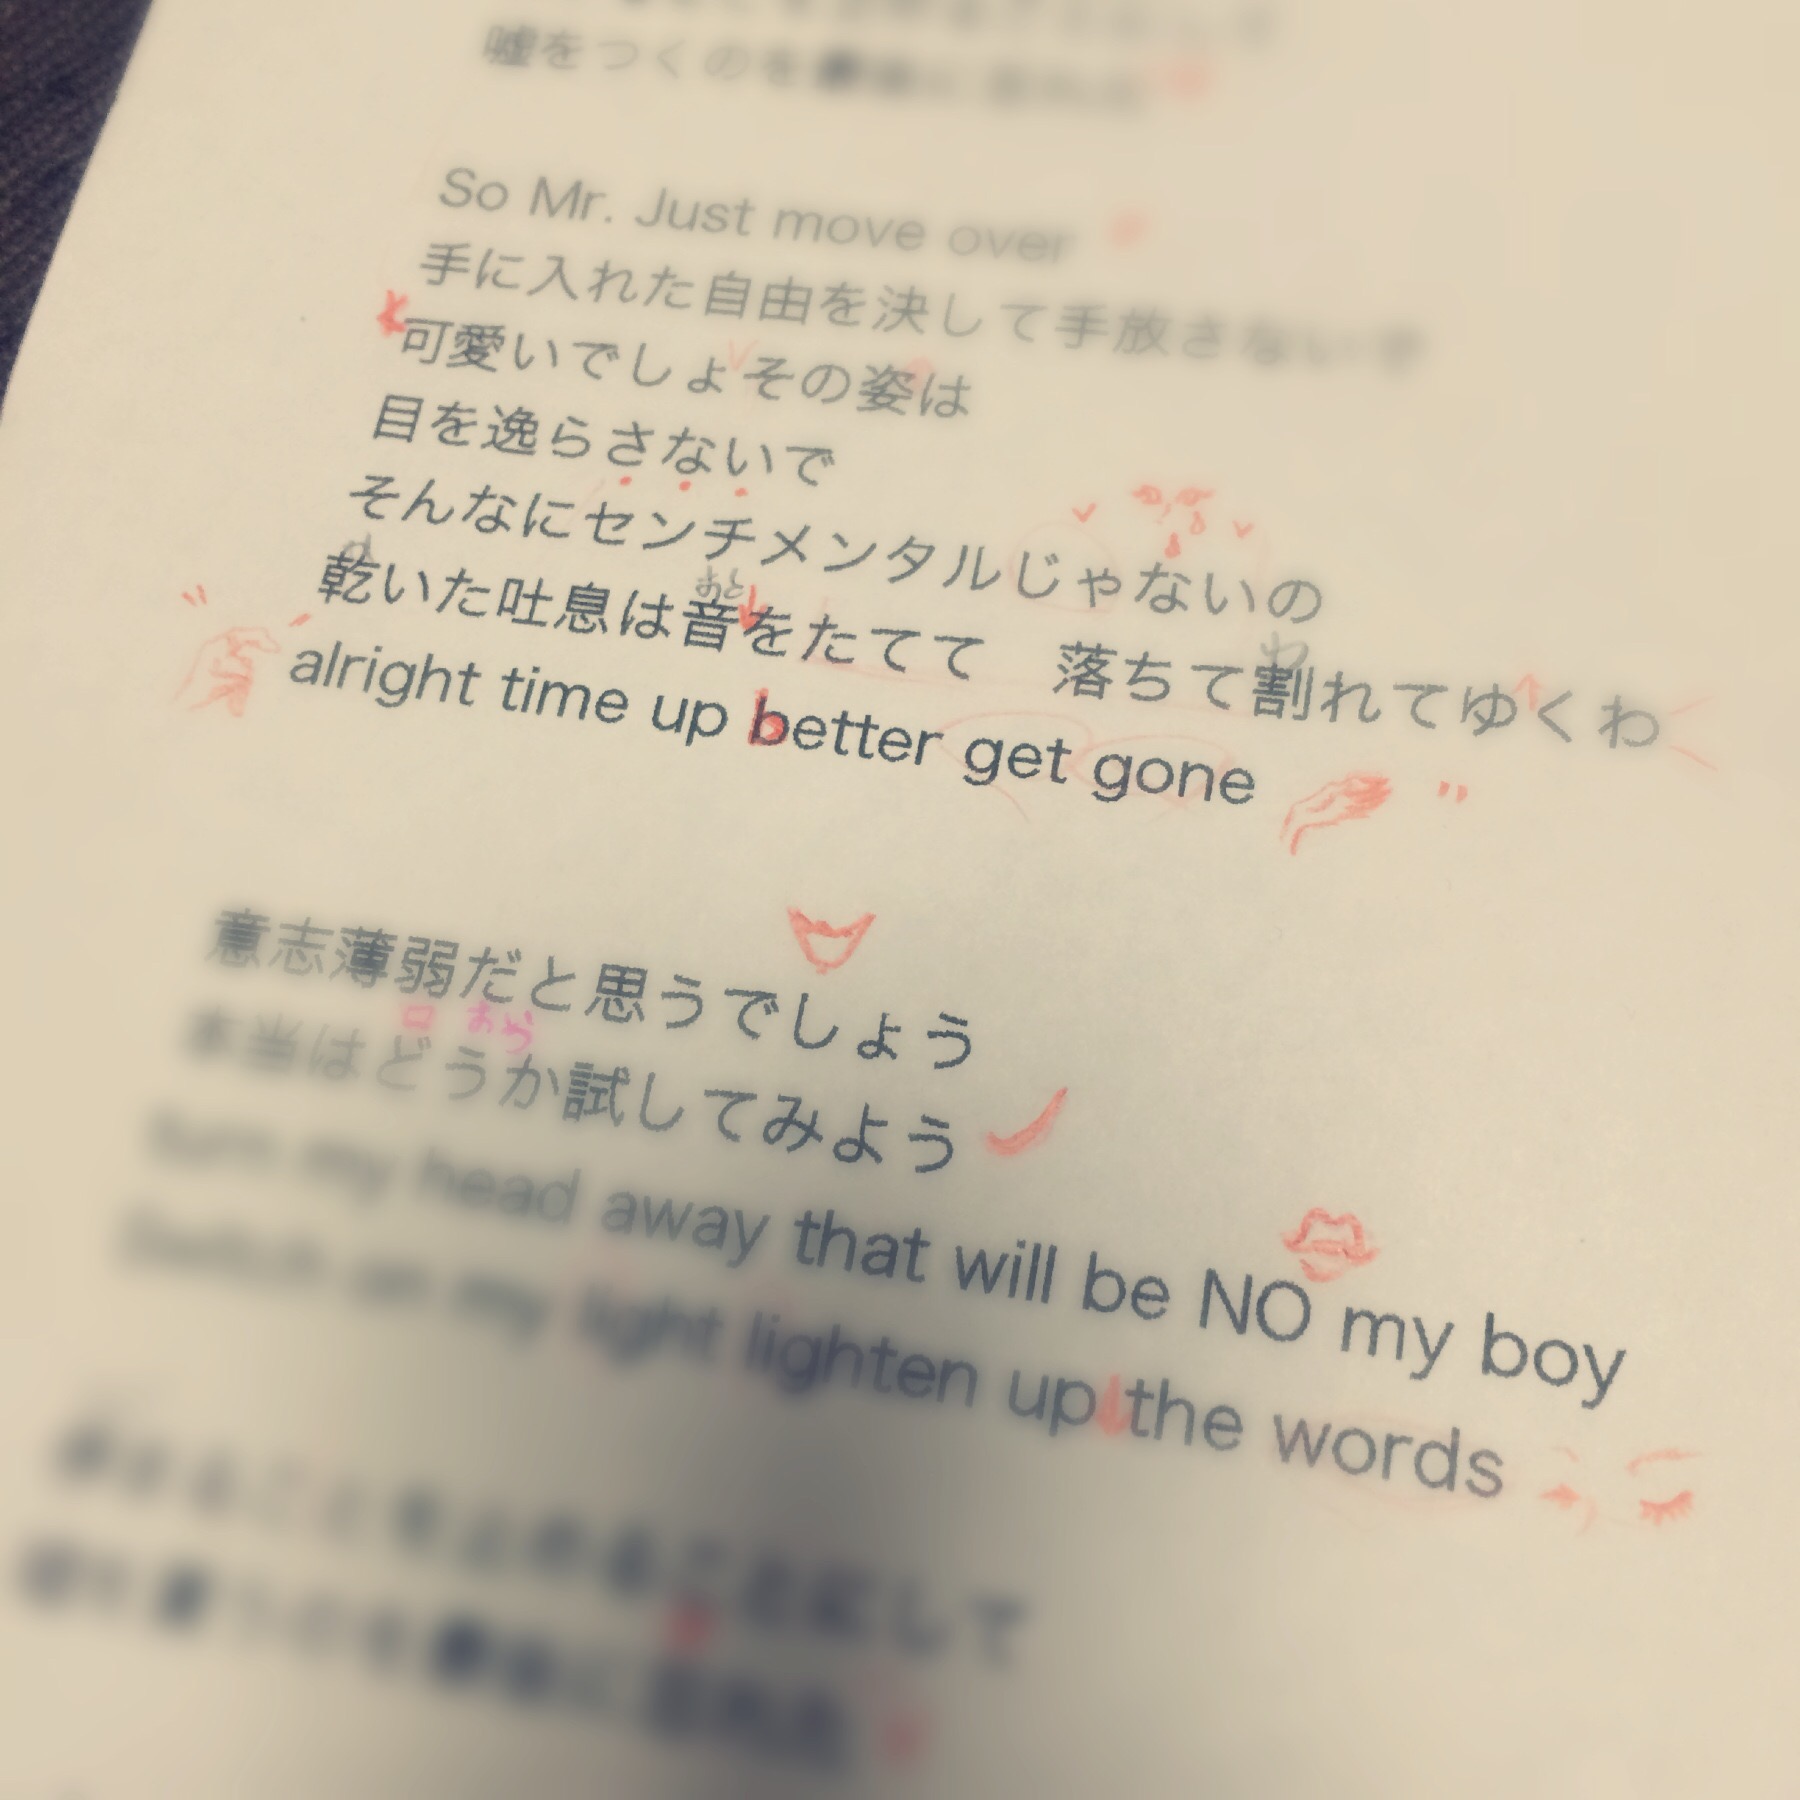 嘘をつくのを
So Mr. Just move over
手に入れた自由を決して手放さないで
可愛いでしょその姿は
目を逸らさないで
そんなにセンチメンタルじゃないの
おと
乾いた吐息は音をたてて 落ちて割れてゆくわ
わ
alright time up better get gone
意志薄弱だと思うでしょう
本当はどうか試してみよう
turn my head away that will be NO my boy
Switch on my light lighten up the words